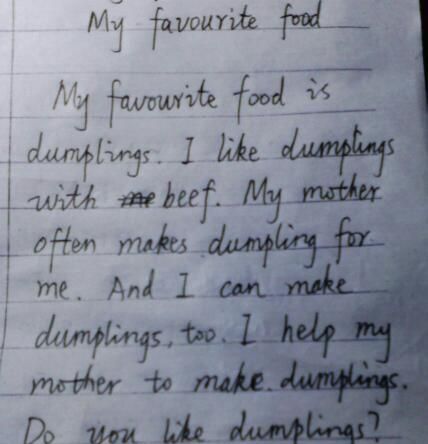 My favourite food
My favourite food is
dumplings. I like dumplings
with beef. My mother
often makes dumpling for
me. And I can make
dumplings, too. I help my
mother to make dumplings.
Do you like dumplings?